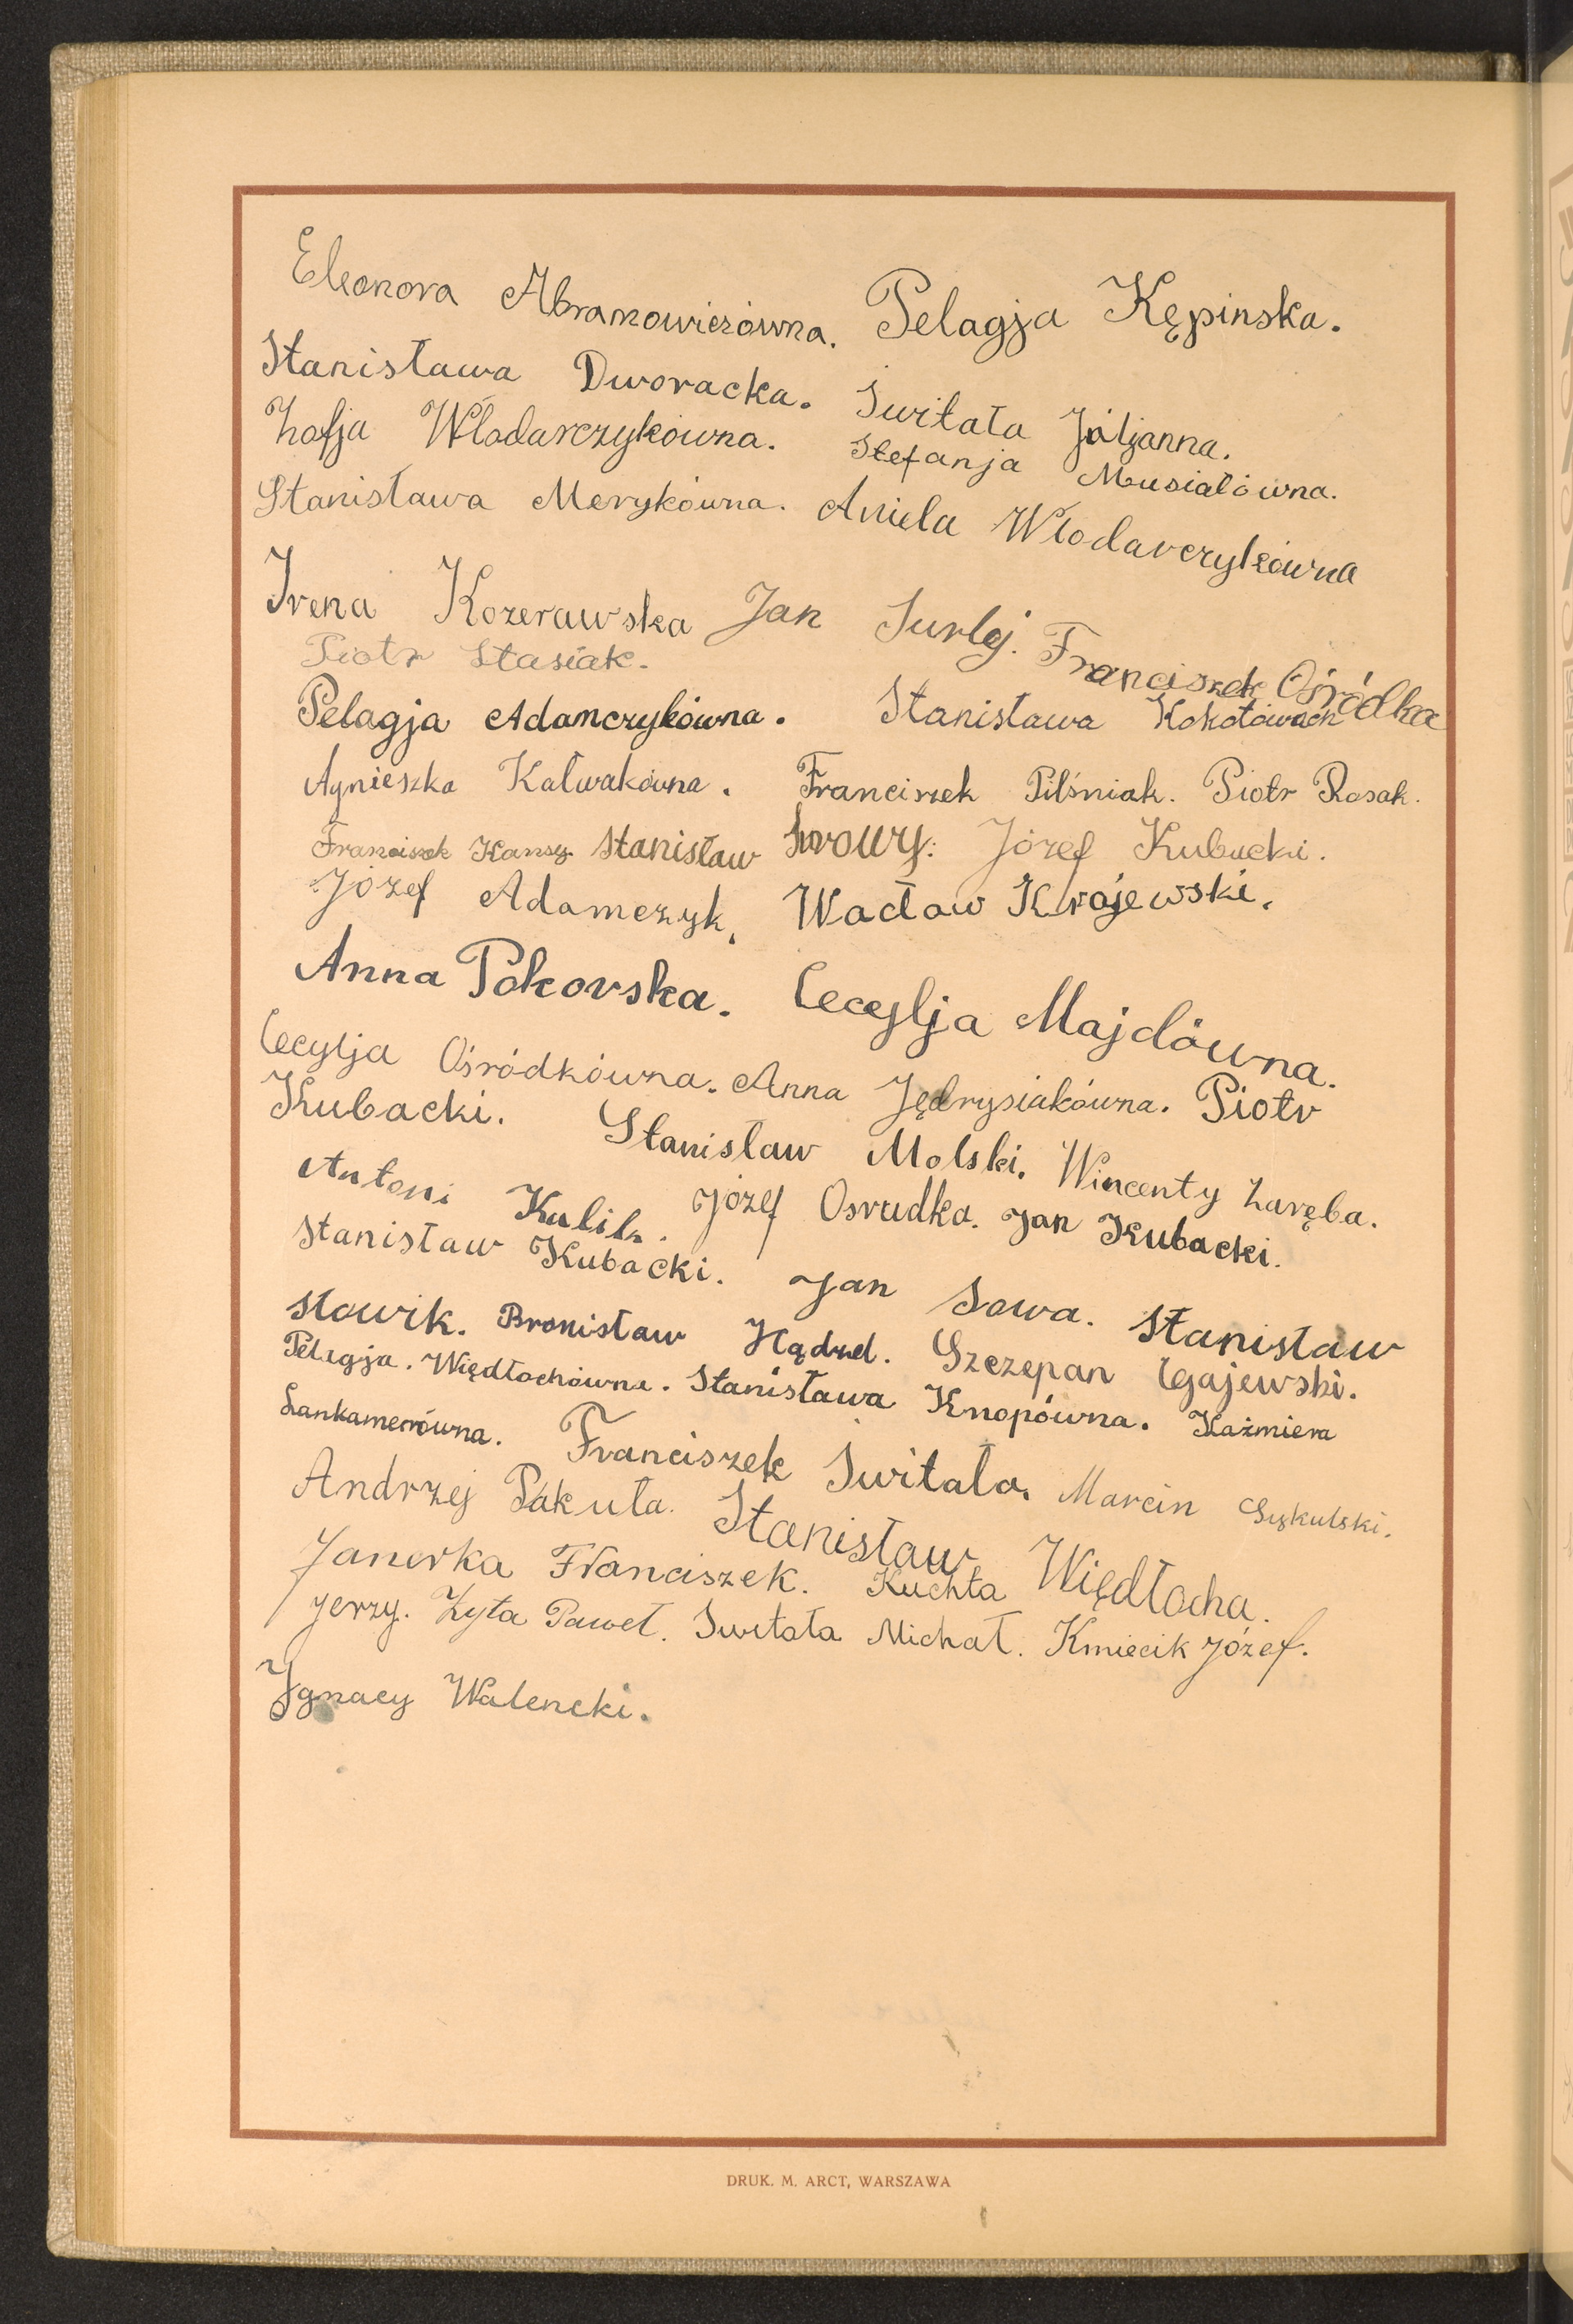 Eleonora Abramowiczówna. Pelagja Kępinska.
Stanisława Dworacka. Switała Juljanna.
Zofja Włodarczykówna. Stefanja Musiałówna.
Stanisława Merykówna. Aniela Włodarczykówna
Irena Kozerawska Jan Surlej. Franciszek Ośródka
Piotr Stasiak.
Pelagja Adamczykówna. Stanisława
Agnieszka Kałwakówna. Franciszek Pilśniak. Piotr Rosak.
Franciszek Kansy. Stanisław Józef Kubacki.
Józef Adamczyk, Wacław Krajewski.
Anna Pokorska. Cecylja Majdówna.
Cecylja Ośródkówna. Anna Jędrysiakówna. Piotr
Kubacki. Stanisław Molski. Wincenty Zaręba.
Antoni Kulik. Józef Osrudka. Jan Kubacki.
Stanisław Kubacki. Jan Sowa. Stanisław
Słowik. Bronisław Szczepan Gajewski.
Pelagja. Więdłochówna. Stanisława Knopówna. Kaźmiera
Lankamerówna. Franciszek Switała. Marcin
Andrzej Pakuła. Stanisław Więdłocha.
Janerka Franciszek. Kuchta
Jerzy. Zyta Paweł. Switała Michał. Kmiecik Józef.
Ignacy Walencki.
DRUK. M. ARCT, WARSZAWA